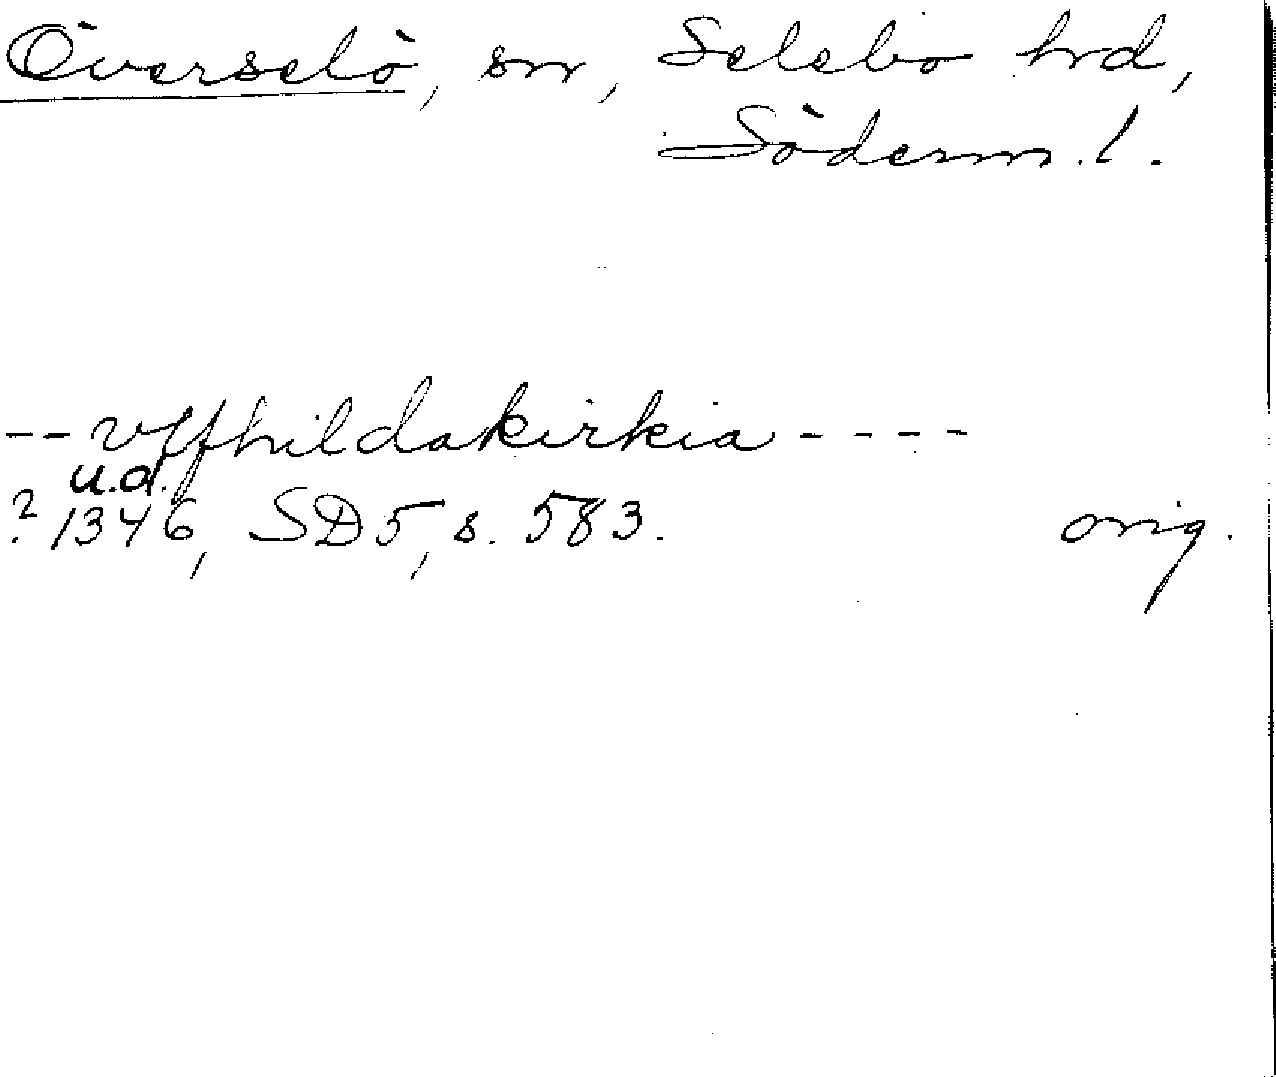 Överselö, sn, Selebo hrd,
Söderm. l.
-- vlfhildakirkia ----
u.d.
? 1346, SD5, s. 583. orig.